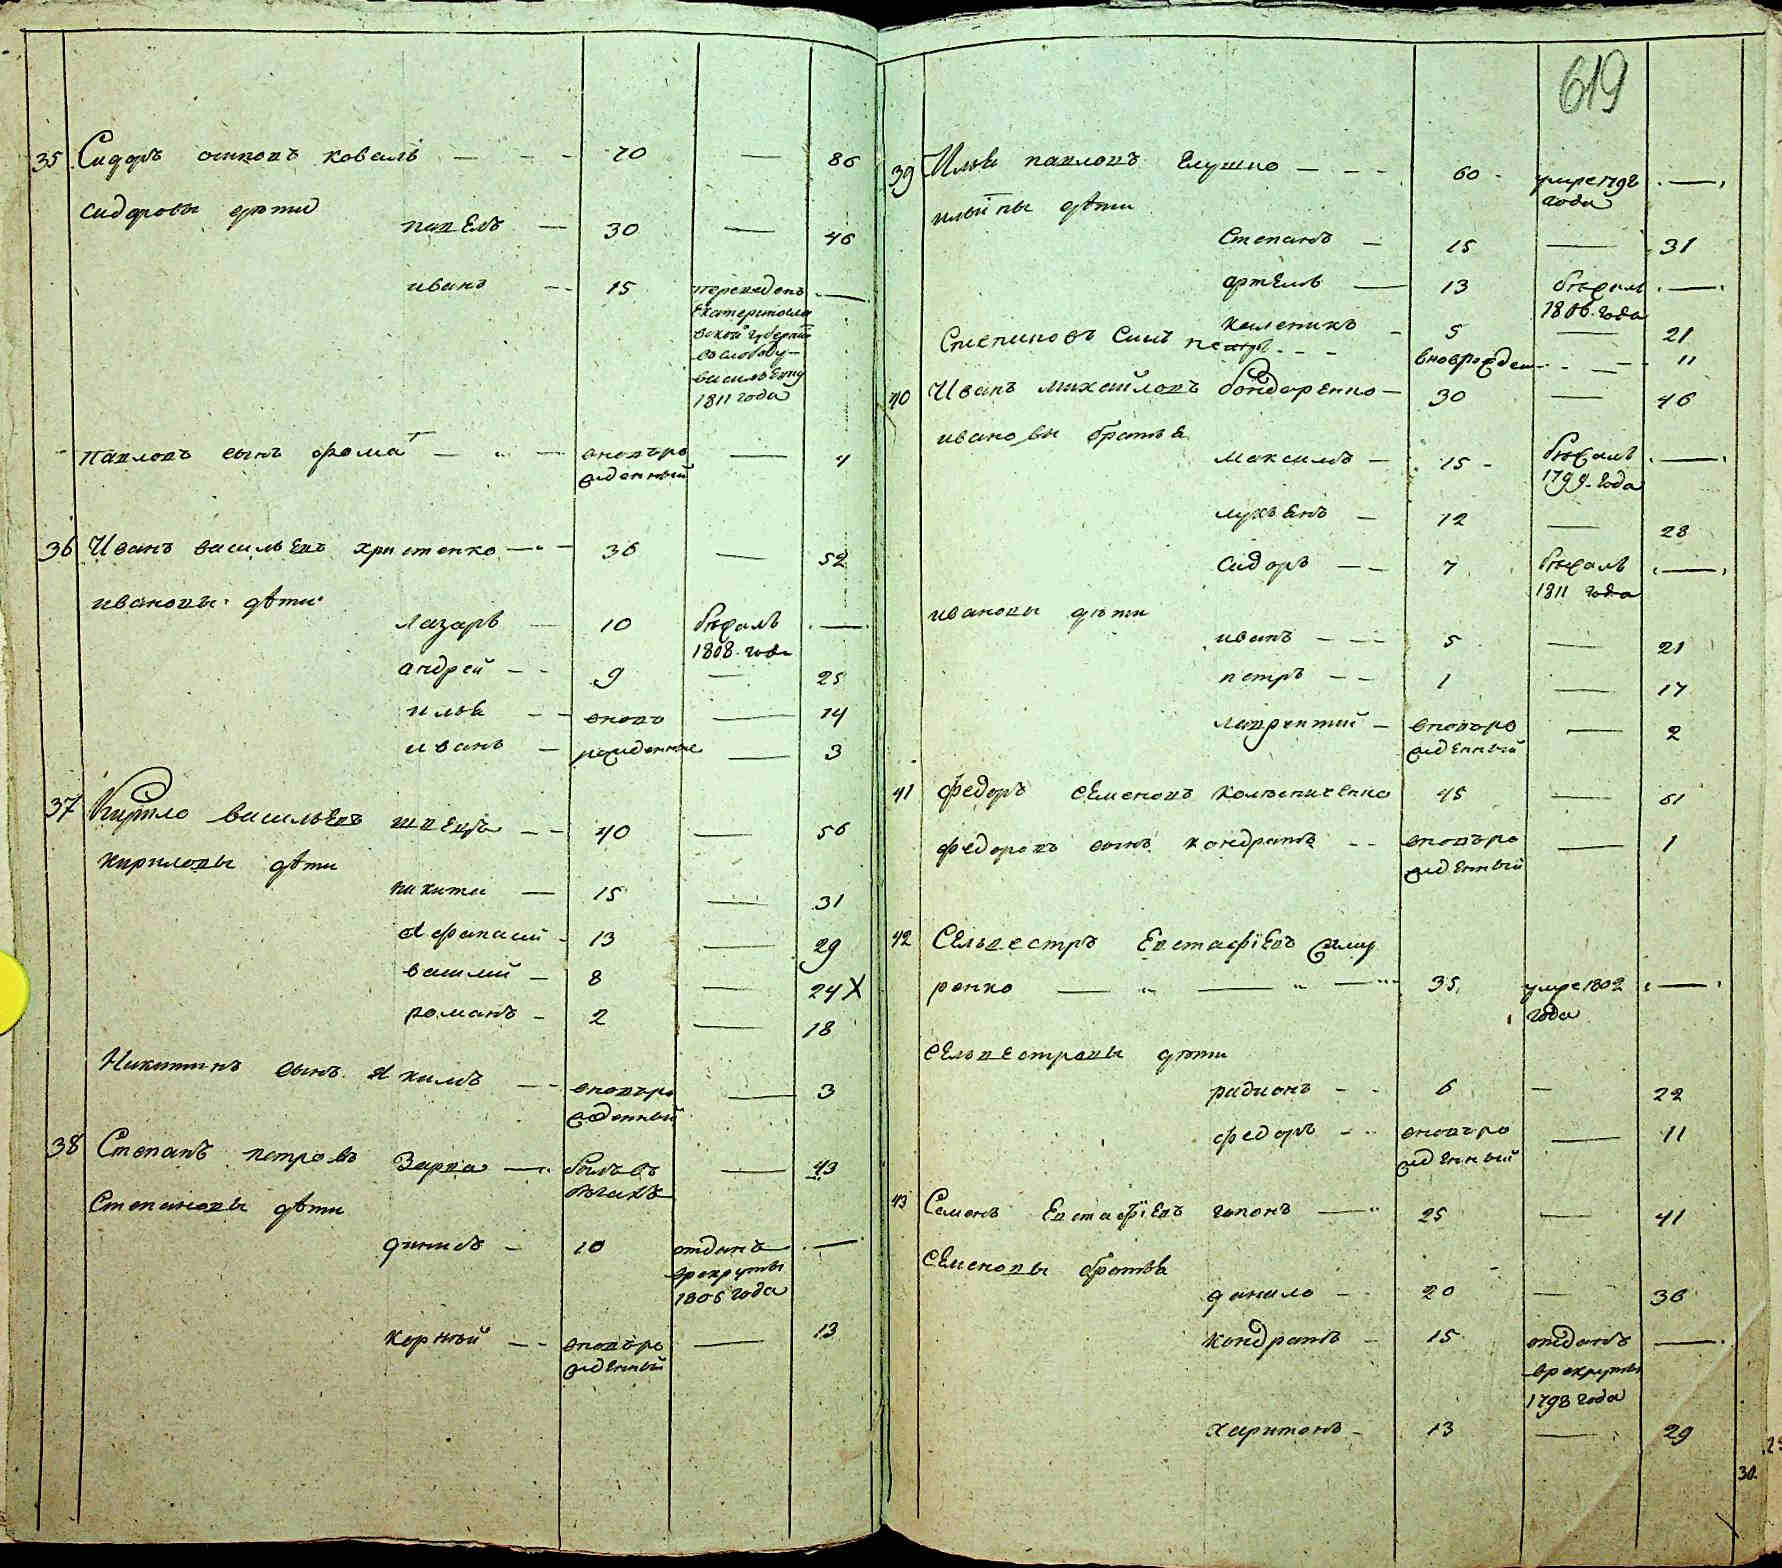 35 Сидоръ осиповъ коваль — 70 — 86
сидоровы дѣти
павелъ — 30 — 46
иванъ — 15 переведенъ —
Екатеринославской губернiи
въ слободу
васильевку
1811 года
павловъ сынъ фома — вновъро — 4
жденный
36 Иванъ васильевъ христенко — 36 — 52
ивановы дѣти
лазарь — 10 бѣжалъ —
1808 года
андрей — 9 — 25
илья — вновь — 14
иванъ — рожденные — 3
37 Кирило васильевъ швецъ — 40 — 56
кириловы дѣти
никита — 15 — 31
Афанасий — 13 — 29
василий — 8 — 24 X
романъ — 2 — 18
Никитинъ сынъ Якимъ — вновъро — 3
жденный
38 Степанъ петровъ Зарва — былъ въ — 43
бѣгахъ
Степановы дѣти
динисъ — 10 отданъ —
врекруты
1806 года
корнѣй — вновъро — 13
жденный
619
39 Илья павловъ Глушко — 60 умре 179
года —
ильины дѣти
Степанъ — 15 — 31
артемъ — 13 бѣжалъ —
1806 года
каленикъ — 5 — 21
Степановъ сынъ петръ — вноврожден — 11
40 Иванъ михайловъ бондаренко — 30 — 46
ивановы братья
максимъ — 15 бѣжалъ —
1799 года
лукьянъ — 12 — 28
сидоръ — 7 бѣжалъ —
1811 года
ивановы дѣти
иванъ — 5 — 21
петръ — 1 — 17
лаврентий — вновъро — 2
жденный
41 федоръ семеновъ колѣсниченко 45 — 61
федоровъ сынъ кондратъ — вновъро — 1
жденный
42 Селвестръ Евстафiевъ
ренко — 35 умре 1802 —
года
селвестровы дѣти
радионъ — 6 — 22
федоръ — вновъро — 11
жденный
43 Семенъ Евстафiевъ гапонъ — 25 — 41
семеновы братья
данило — 20 — 36
кондратъ — 15 отданъ —
врекруты
1798 года
харитонъ — 13 — 29
30